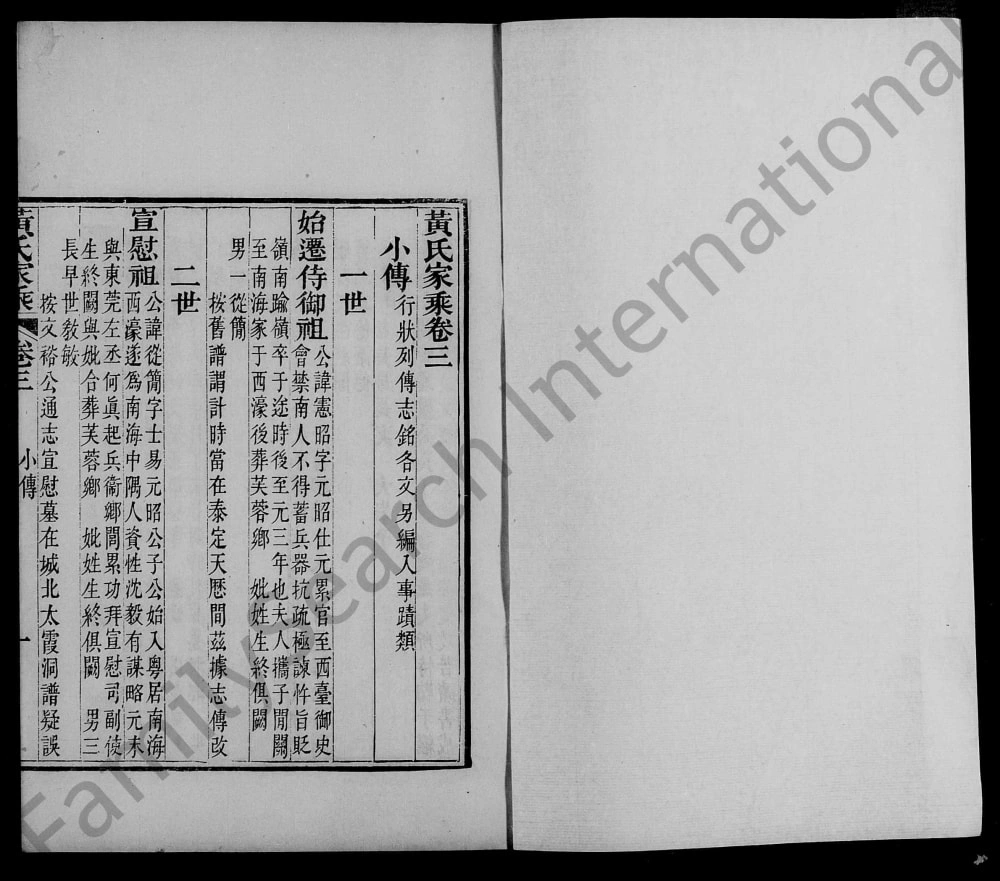 黃氏家乘卷三
小傳 行狀列傳志銘各文另編入事蹟類
一世
始遷侍御祖 公諱憲昭字元昭仕元累官至西臺御史
會禁南人不得蓄兵器抗疏極諫忤旨貶
嶺南踰嶺卒于途時後至元三年也夫人攜子閒關
至南海家于西濠後葬芙蓉鄉 妣姓生終俱闕
男一從簡
按舊譜謂計時當在泰定天厯間茲據志傳改
二世
宣慰祖 公諱從簡字士易元昭公子公始入粵居南海
西濠遂爲南海中隅人資性沈毅有謀略元末
與東莞左丞何眞起兵衞鄉閭累功拜宣慰司副使
生終闕與妣合葬芙蓉鄉 妣姓生終俱闕 男三
長早世敎敏
按文裕公通志宣慰墓在城北太霞洞譜疑誤
黃氏家乘 卷三 小傳 一
FamilySearch International